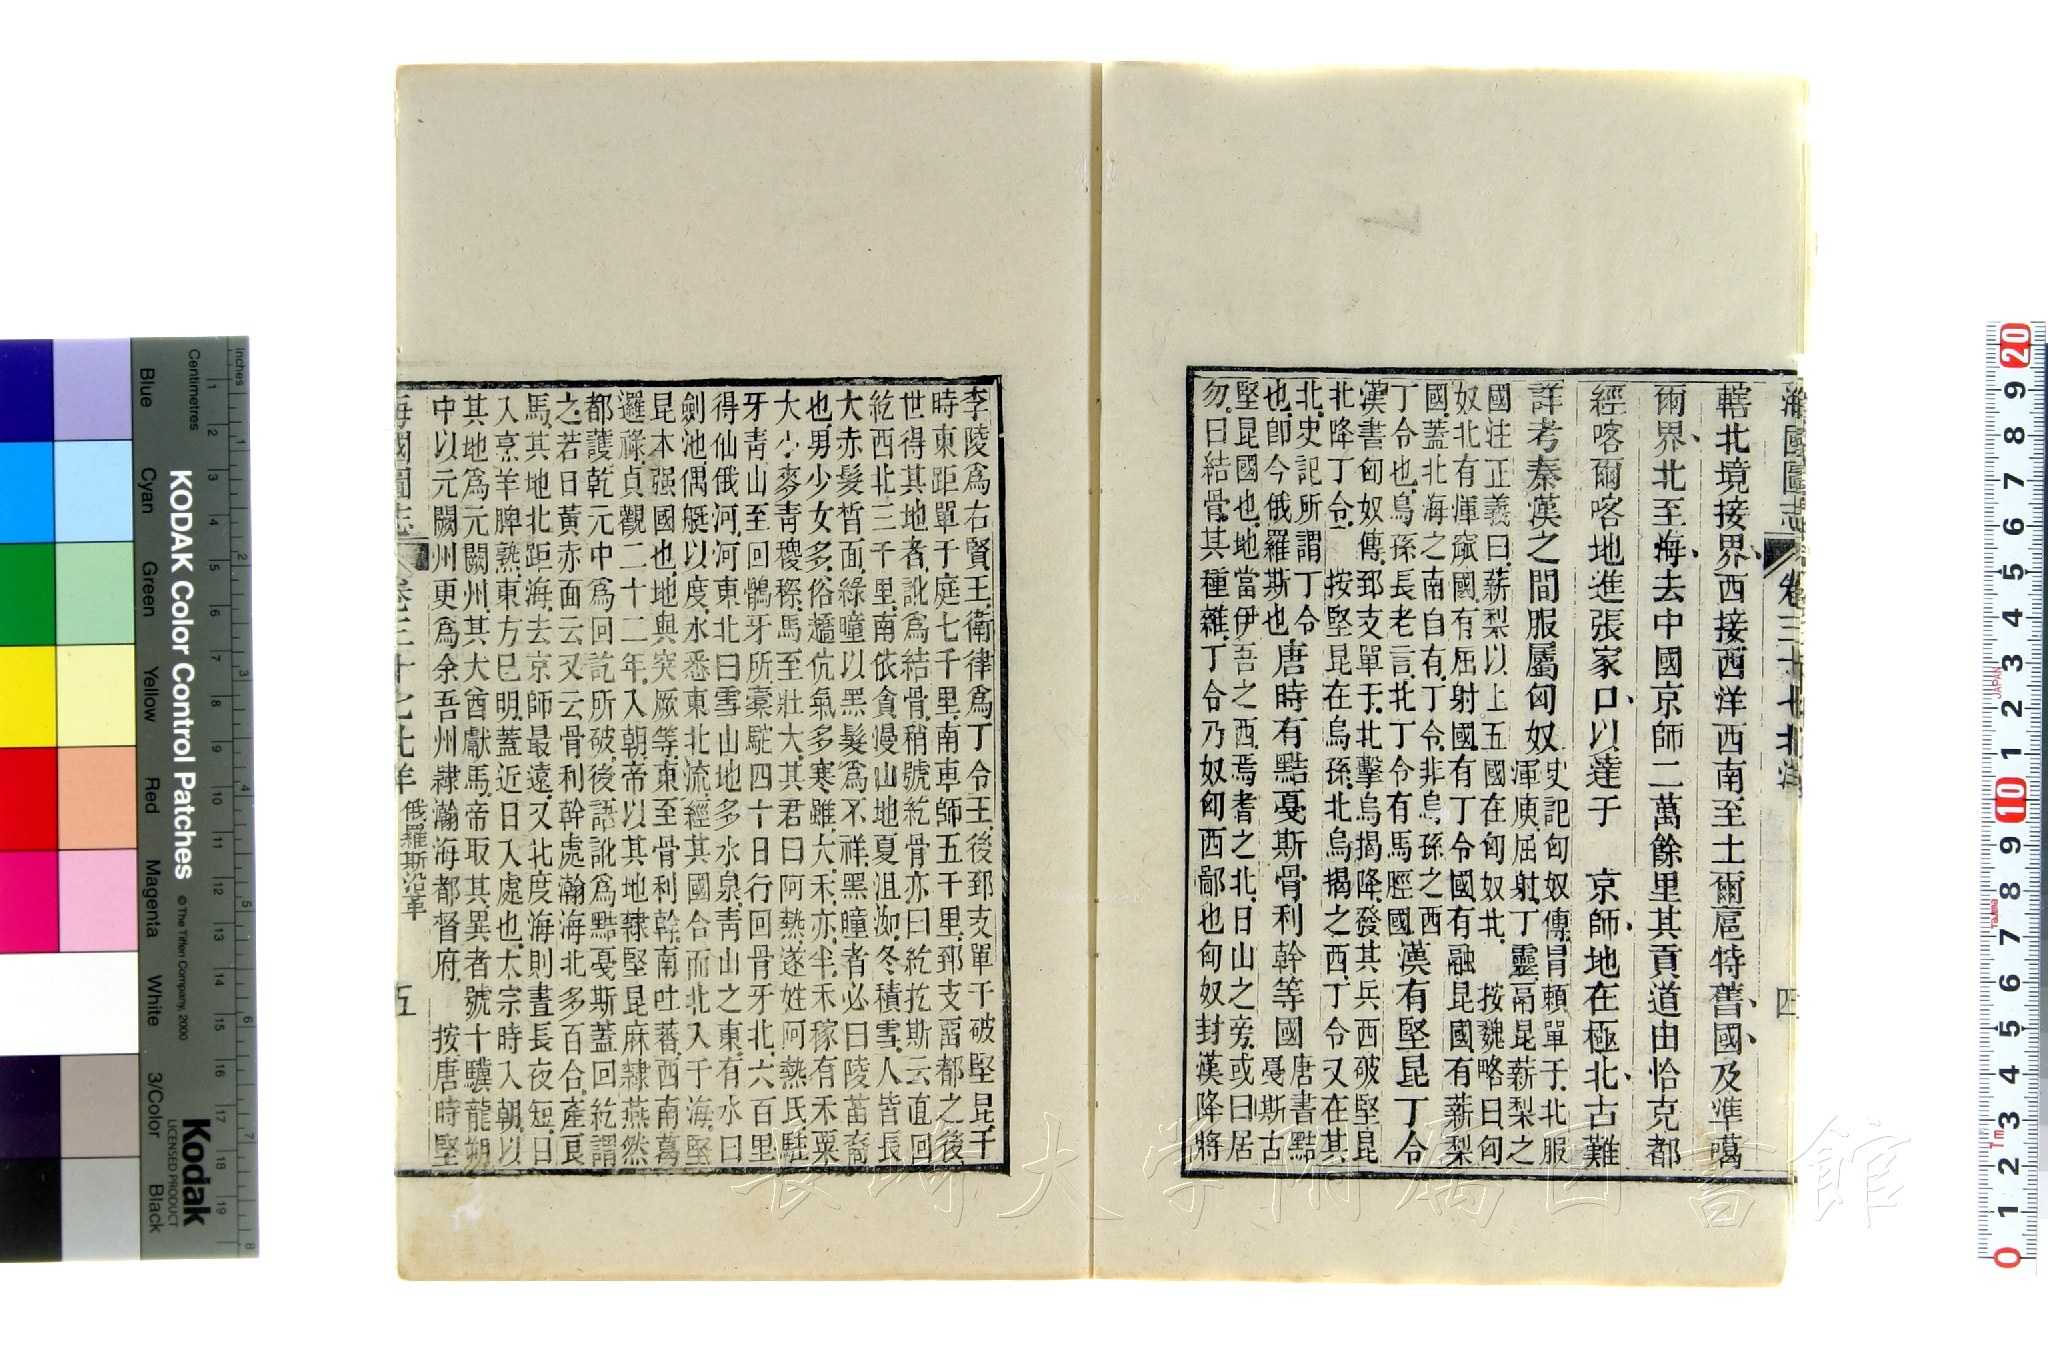 海國圖志 卷三十七北洋 四
轄北境接界西接西洋西南至土爾扈特舊國及準噶
爾界北至海去中國京師二萬餘里其貢道由恰克都
經喀爾喀地進張家口以達于 京師地在極北古難
詳考秦漢之間服屬匈奴史記匈奴傳冒頓單于北服
渾庾屈射丁靈鬲昆薪梨之
國注正義曰薪梨以上五國在匈奴北 按魏略曰匈
奴北有渾窳國有屈射國有丁令國有融昆國有薪梨
國蓋北海之南自有丁令非烏孫之西
丁令也烏孫長老言北丁令有馬脛國漢有堅昆丁令
漢書匈奴傳郅支單于北擊烏揭降發其兵西破堅昆
北降丁令 按堅昆在烏孫北烏揭之西丁令又在其
北史記所謂丁令
也卽今俄羅斯也唐時有黠戞斯骨利幹等國唐書黠
戞斯古
堅昆國也地當伊吾之西焉耆之北白山之旁或曰居
勿曰結骨其種雜丁令乃奴匈西鄙也匈奴封漢降將
李陵爲右賢王衛律爲丁令王後郅支單于破堅昆于
時東距單于庭七千里南車師五千里郅支畱都之後
世得其地者訛爲結骨稍號紇骨亦曰紇扢斯云直回
紇西北三千里南依貪漫山地夏沮洳冬積雪人皆長
大赤髮皙面綠瞳以黑髮爲不祥黑瞳者必曰陵苗裔
也男少女多俗趫伉氣多寒雖大禾亦半禾稼有禾粟
大小麥靑稷穄馬至壯大其君曰阿熱遂姓阿熱氏駐
牙靑山至回鶻牙所橐駝四十日行回骨牙北六百里
得仙俄河河東北曰雪山地多水泉靑山之東有水曰
劍池偶艇以度水悉東北流經其國合而北入于海堅
昆本强國也地與突厥等東至骨利幹南吐蕃西南葛
邏祿貞觀二十二年入朝帝以其地隸堅昆府隸燕然
都護乾元中爲回訖所破後語訛爲黠戞斯蓋回紇謂
之若曰黃赤面云又云骨利幹處瀚海北多百合產良
馬其地北距海去京師最遠又北度海則晝長夜短日
入烹羊脾熟東方已明蓋近日入處也太宗時入朝以
其地爲元闕州其大酋獻馬帝取其異者號十驥龍朔
中以元闕州更爲余吾州隸瀚海都督府 按唐時堅
海國圖志 卷三十七北洋 俄羅斯沿革 五
KODAK Color Control Patches
© The Tiffen Company, 2000
Kodak
LICENSED PRODUCT
Inches
Centimetres
Blue
Cyan
Green
Yellow
Red
Magenta
White
3/Color
Black
JAPAN
長崎大学附属図書館